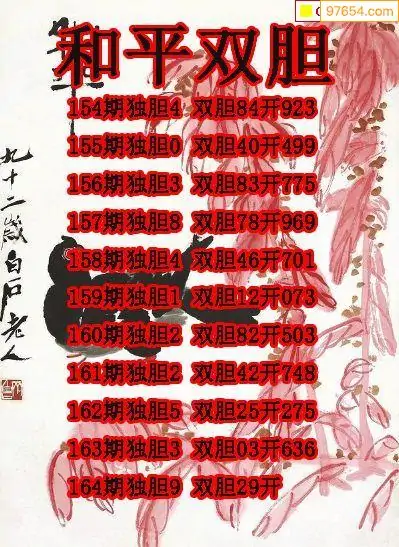 97654.com
和平双胆
154期独胆4 双胆84开923
155期独胆0 双胆40开499
156期独胆3 双胆83开775
157期独胆8 双胆78开969
158期独胆4 双胆46开701
159期独胆1 双胆12开073
160期独胆2 双胆82开503
161期独胆2 双胆42开748
162期独胆5 双胆25开275
163期独胆3 双胆03开636
164期独胆9 双胆29开
九十二岁白石老人